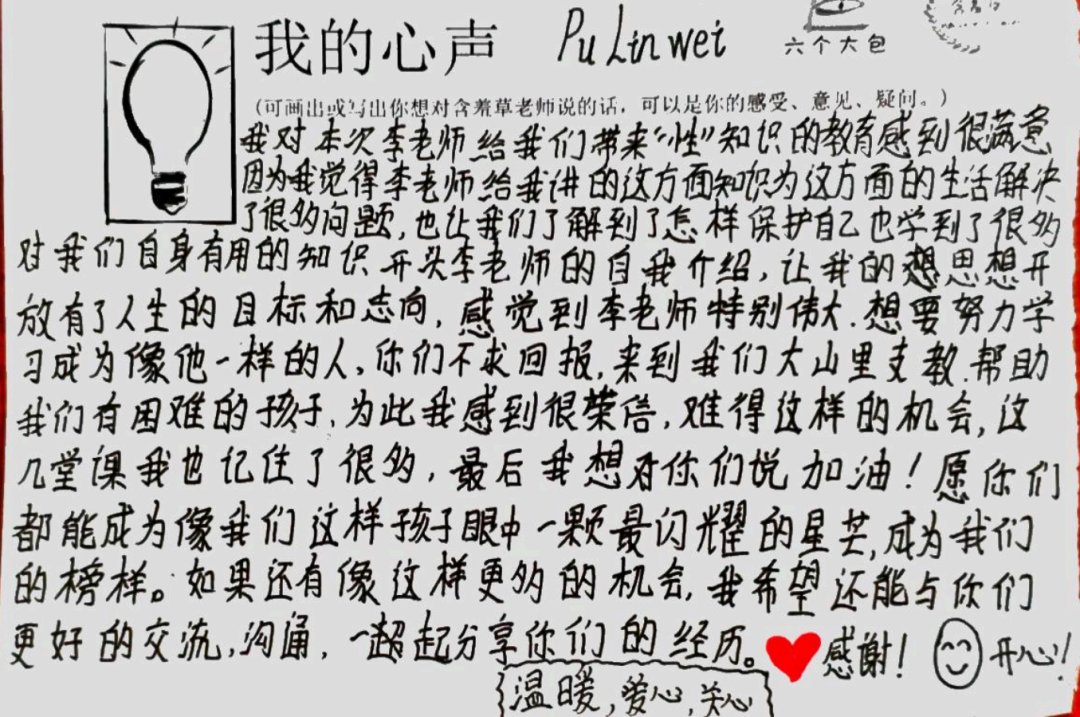 我的心声 Pu Linwei
六个大包
(可画出或写出你想对含羞草老师说的话，可以是你的感受、意见、疑问。)
我对本次李老师给我们带来“性”知识的教育感到很满意
因为我觉得李老师给我讲的这方面知识为这方面的生活解决
了很多问题，也让我们了解到了怎样保护自己也学到了很多
对我们自身有用的知识开头李老师的自我介绍，让我的思想开
放有了人生的目标和志向，感觉到李老师特别伟大.想要努力学
习成为像他一样的人，你们不求回报，来到我们大山里支教.帮助
我们有困难的孩子，为此我感到很荣倍，难得这样的机会，这
几堂课我也记住了很多，最后我想对你们说加油！愿你们
都能成为像我们这样孩子眼中一颗最闪耀的星芒，成为我们
的榜样。如果还有像这样更多的机会，我希望还能与你们
更好的交流，沟通，一起分享你们的经历。感谢！开心！
温暖，爱心，关心